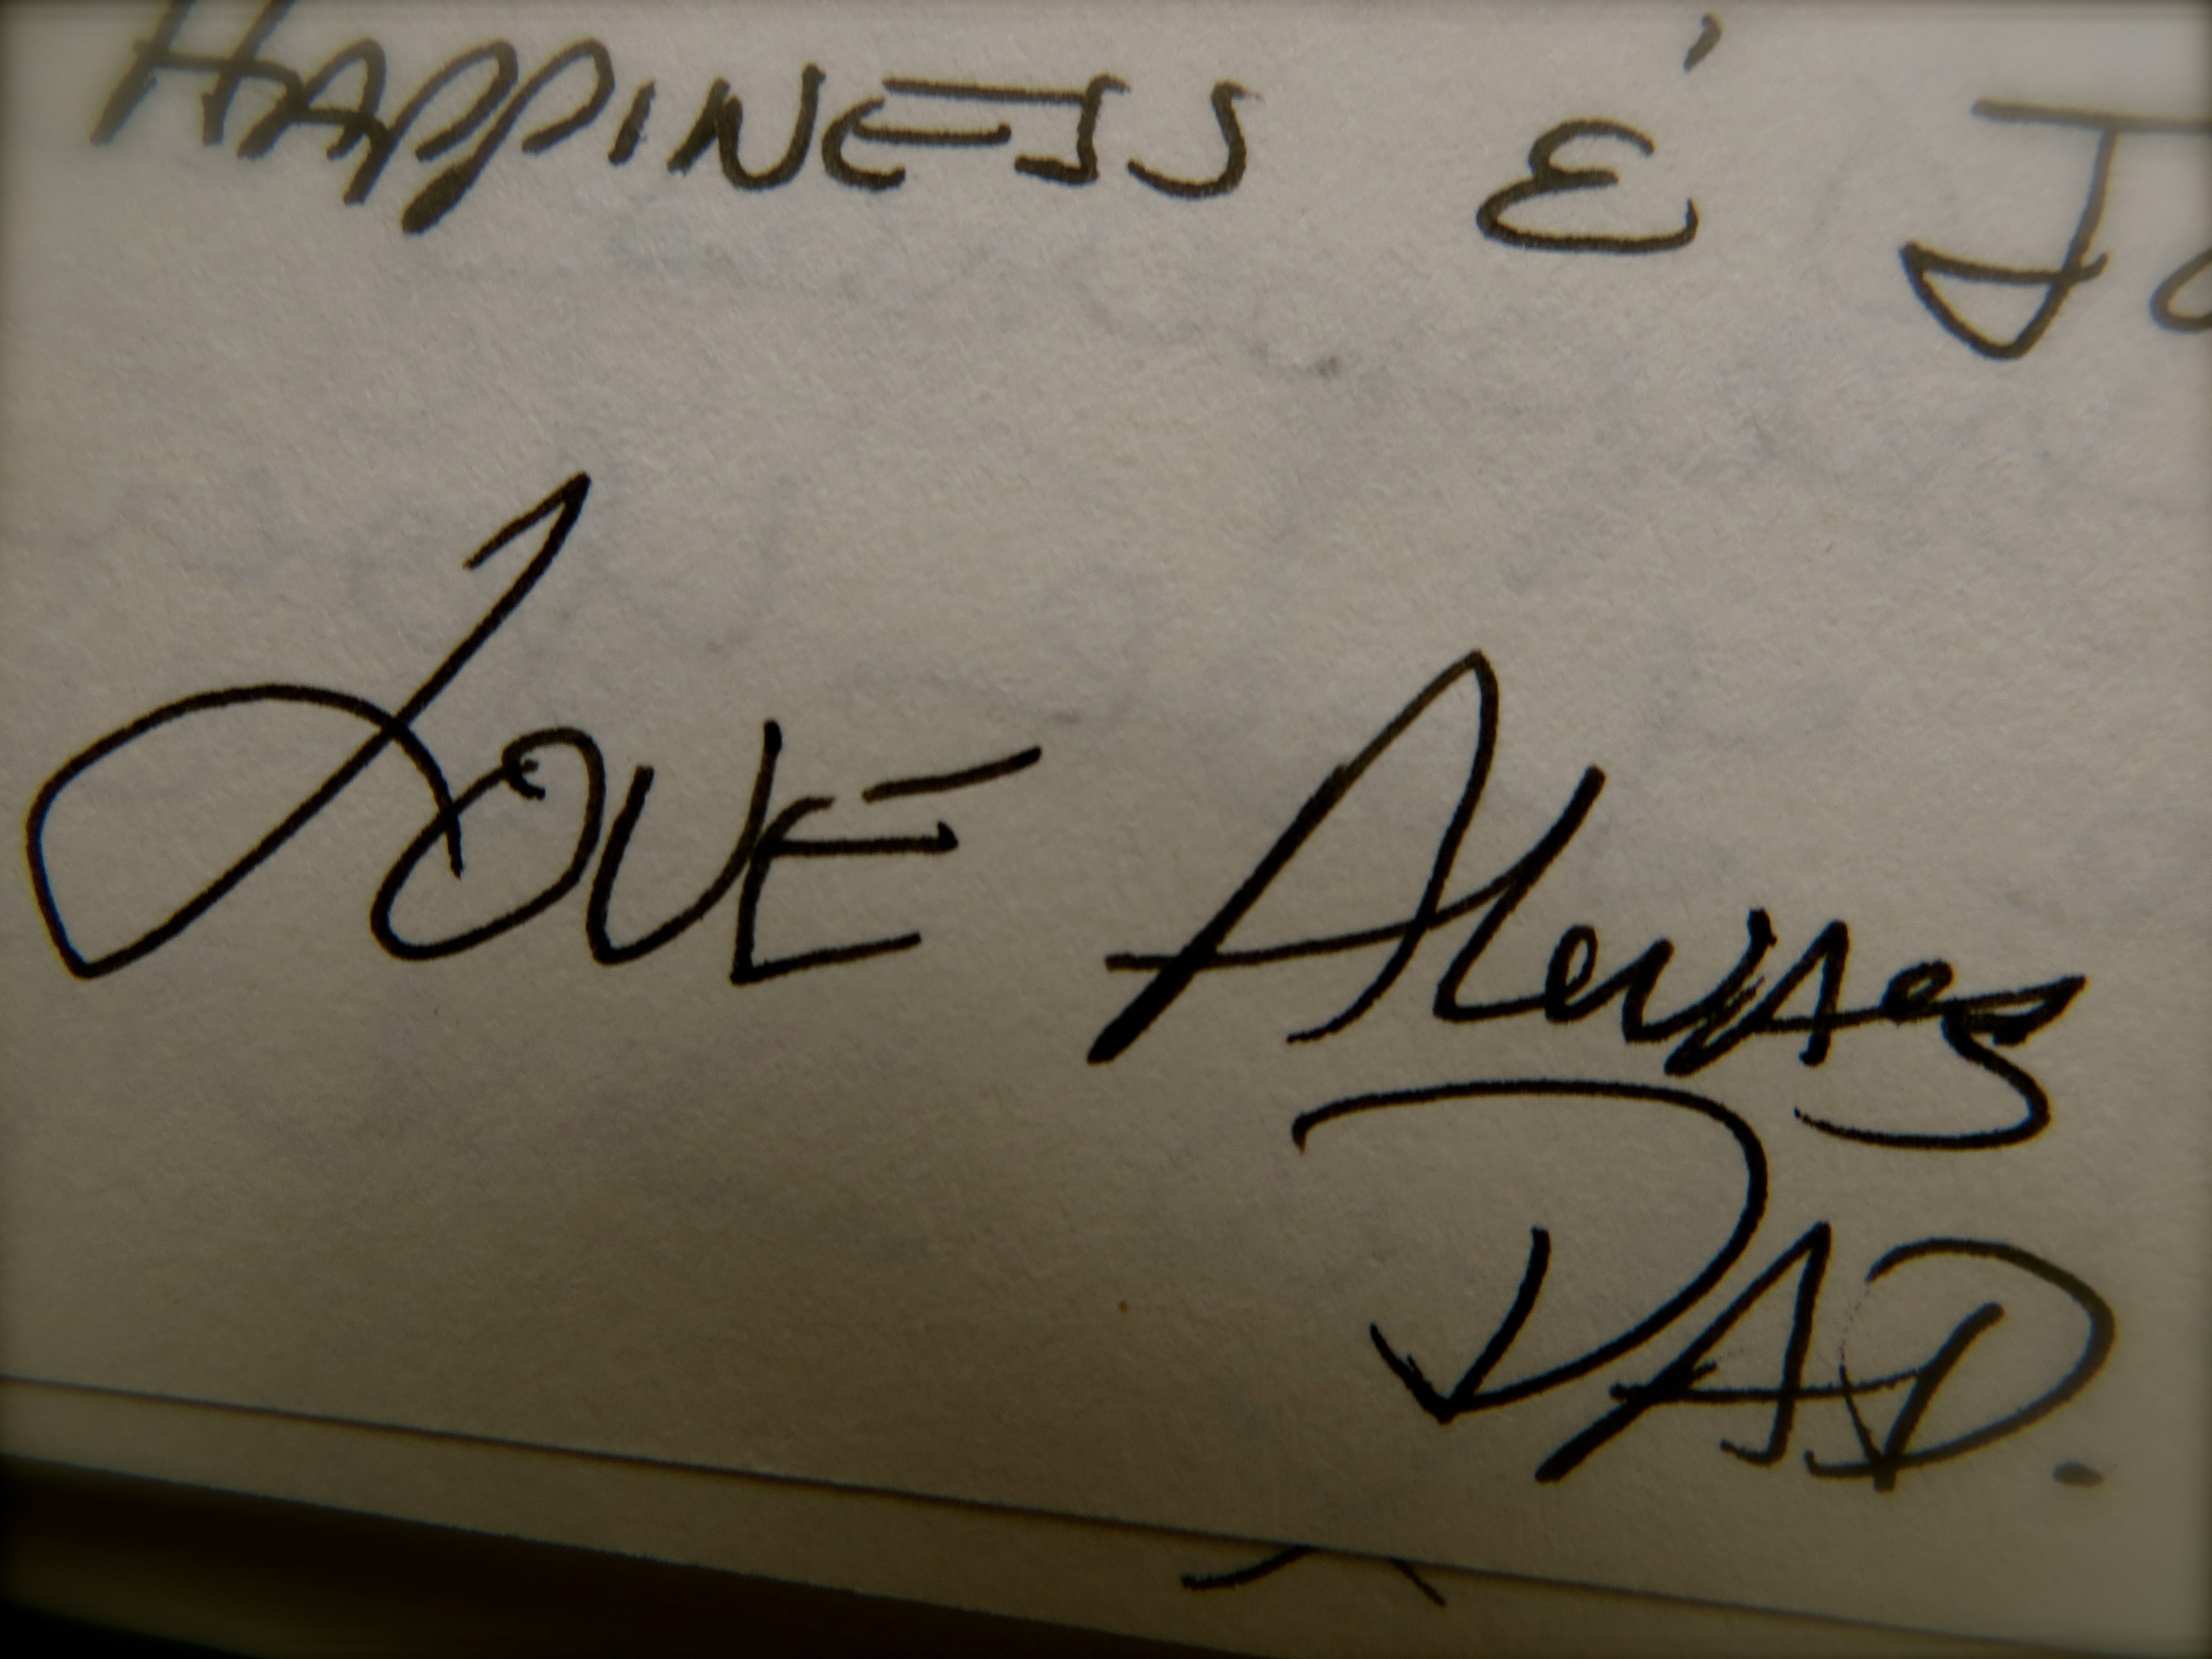 HAPPINESS & JO
LOVE ALWAYS
DAD.